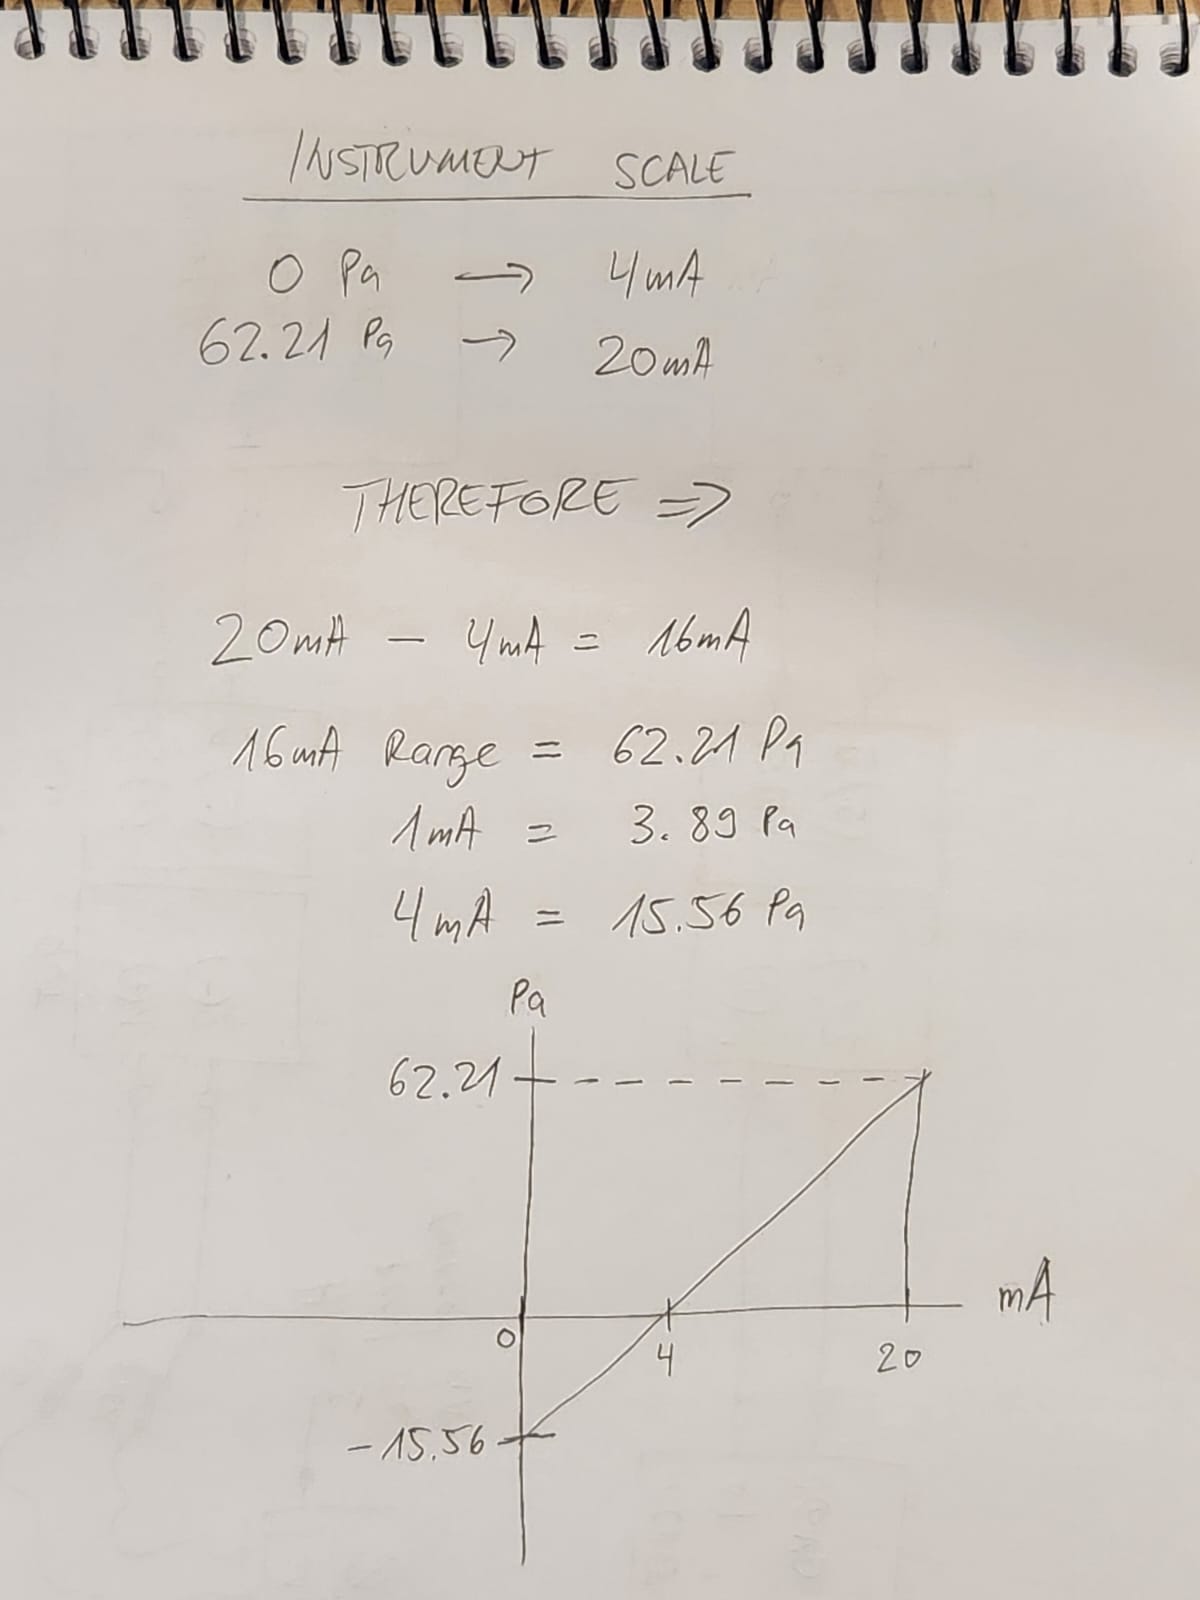 INSTRUMENT SCALE
0 Pa → 4mA
62.21 Pa → 20mA
THEREFORE ⇒
20mA - 4mA = 16mA
16mA Range = 62.21 Pa
1mA = 3.89 Pa
4mA = 15.56 Pa
Pa
62.21
mA
0
4
20
-15.56